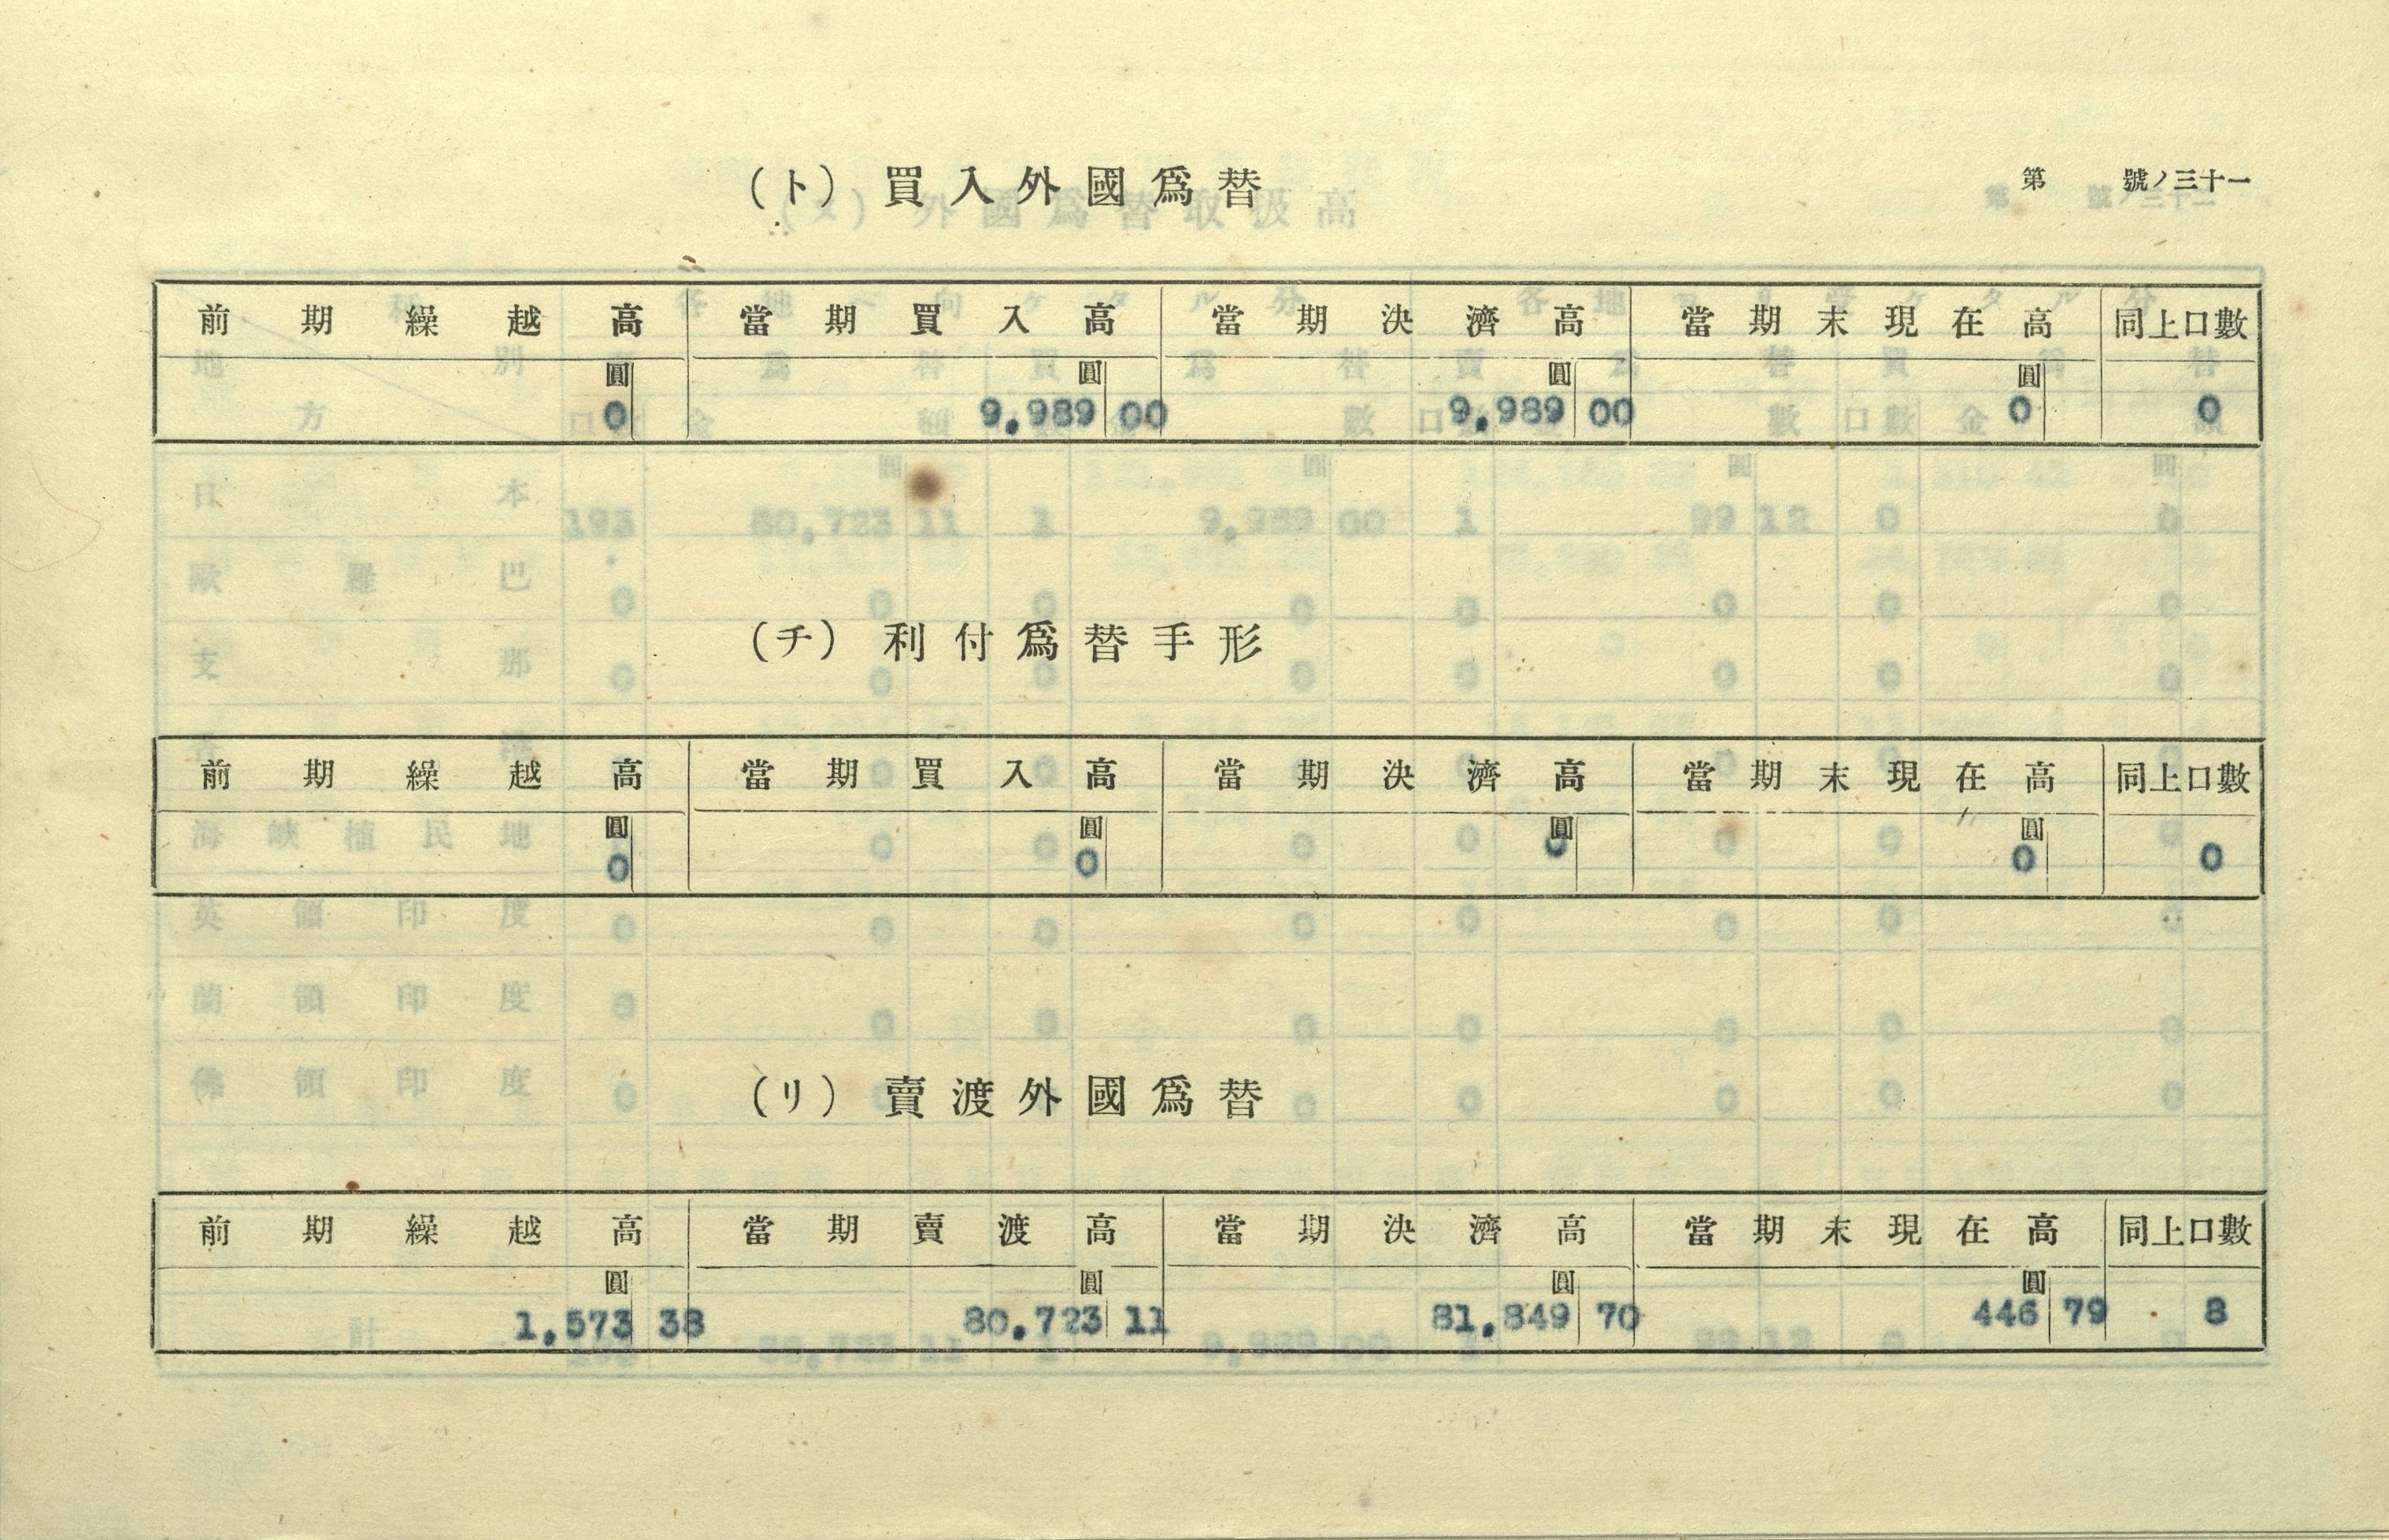 第 號ノ三十一
(ト) 買入外國爲替
前期繰越高 當期買入高 當期決濟高 當期末現在高 同上口數
圓 圓 圓 圓
0 9,989 00 9,989 00 0 0
(チ) 利付爲替手形
前期繰越高 當期買入高 當期決濟高 當期末現在高 同上口數
圓 圓 圓 圓
0 0 0 0 0
(リ) 賣渡外國爲替
前期繰越高 當期賣渡高 當期決濟高 當期末現在高 同上口數
圓 圓 圓 圓
1,573 38 80,723 11 81,849 70 446 79 8